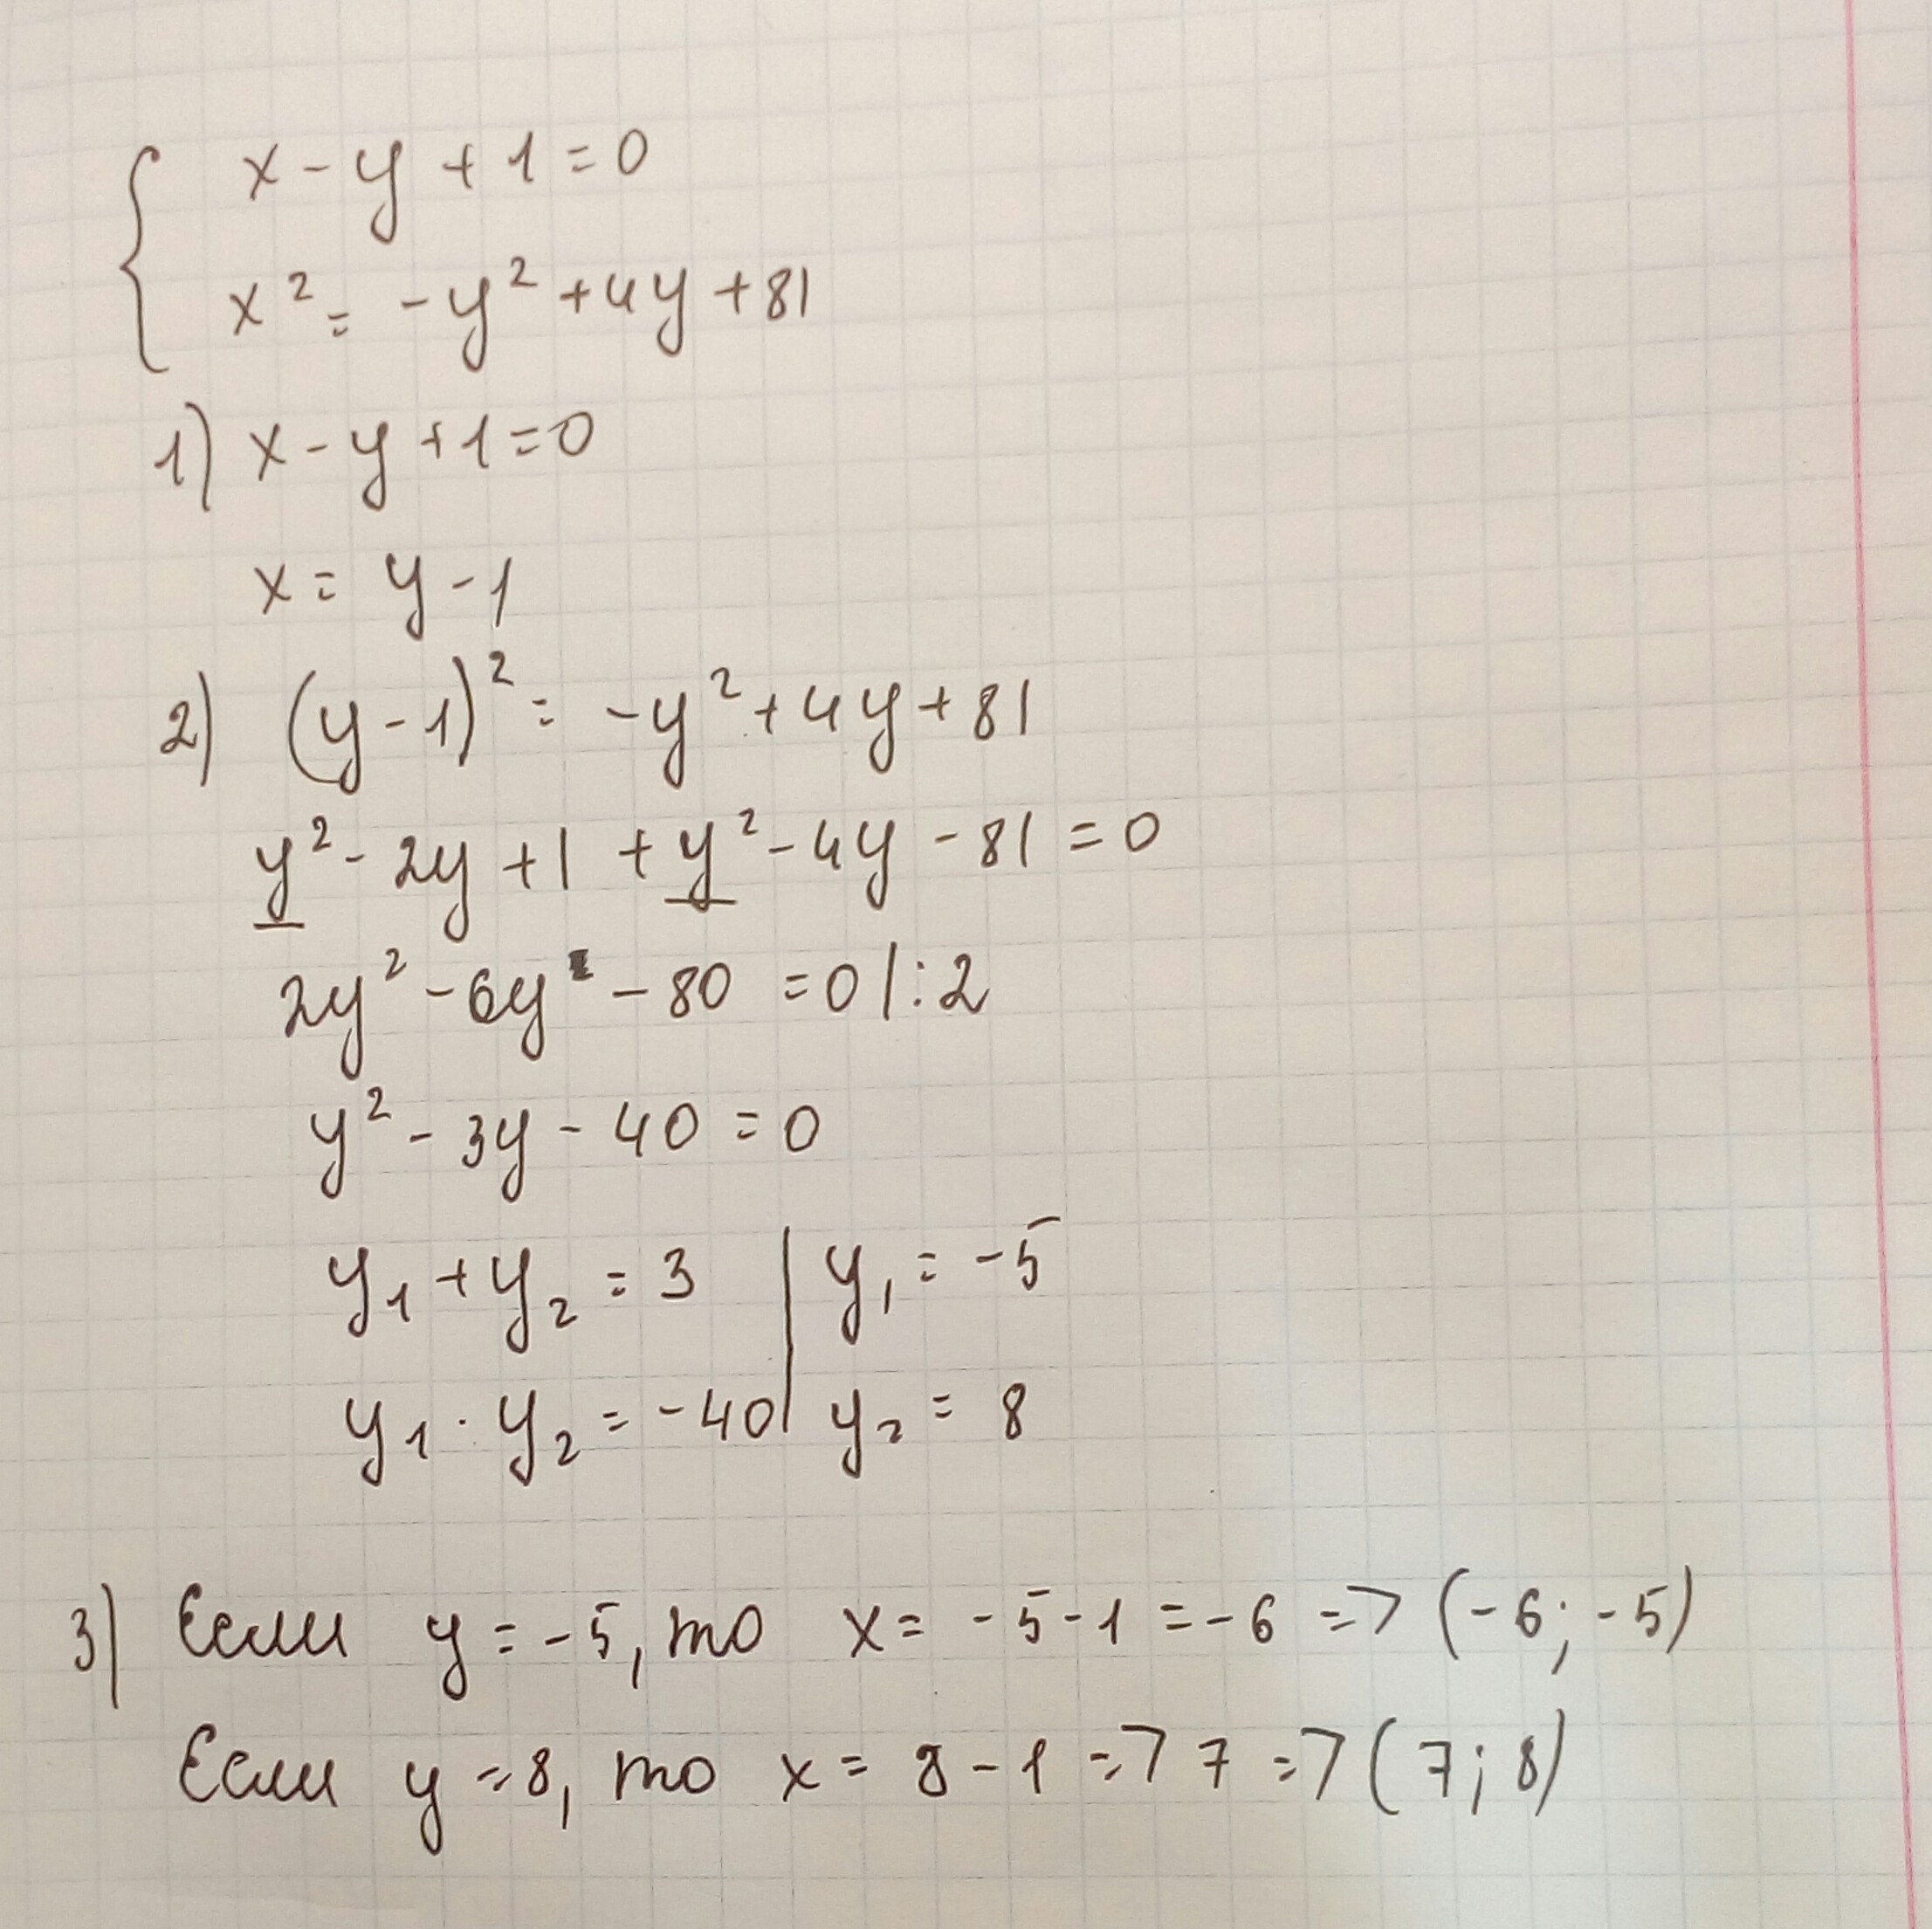 { x - y + 1 = 0
x² = -y² + 4y + 81
1) x - y + 1 = 0
x = y - 1
2) (y - 1)² = -y² + 4y + 81
y² - 2y + 1 + y² - 4y - 81 = 0
2y² - 6y - 80 = 0 | : 2
y² - 3y - 40 = 0
y₁ + y₂ = 3 | y₁ = -5
y₁ · y₂ = -40 | y₂ = 8
3) Если y = -5, то x = -5 - 1 = -6 => (-6; -5)
Если y = 8, то x = 8 - 1 => 7 => (7; 8)